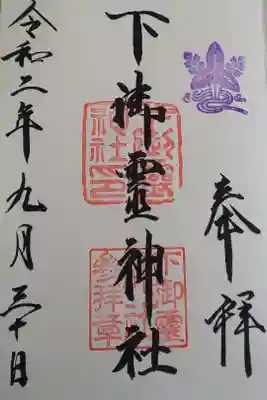 奉拝
下御霊神社
下御霊神社印
下御霊神社参拝章
令和二年九月三十日